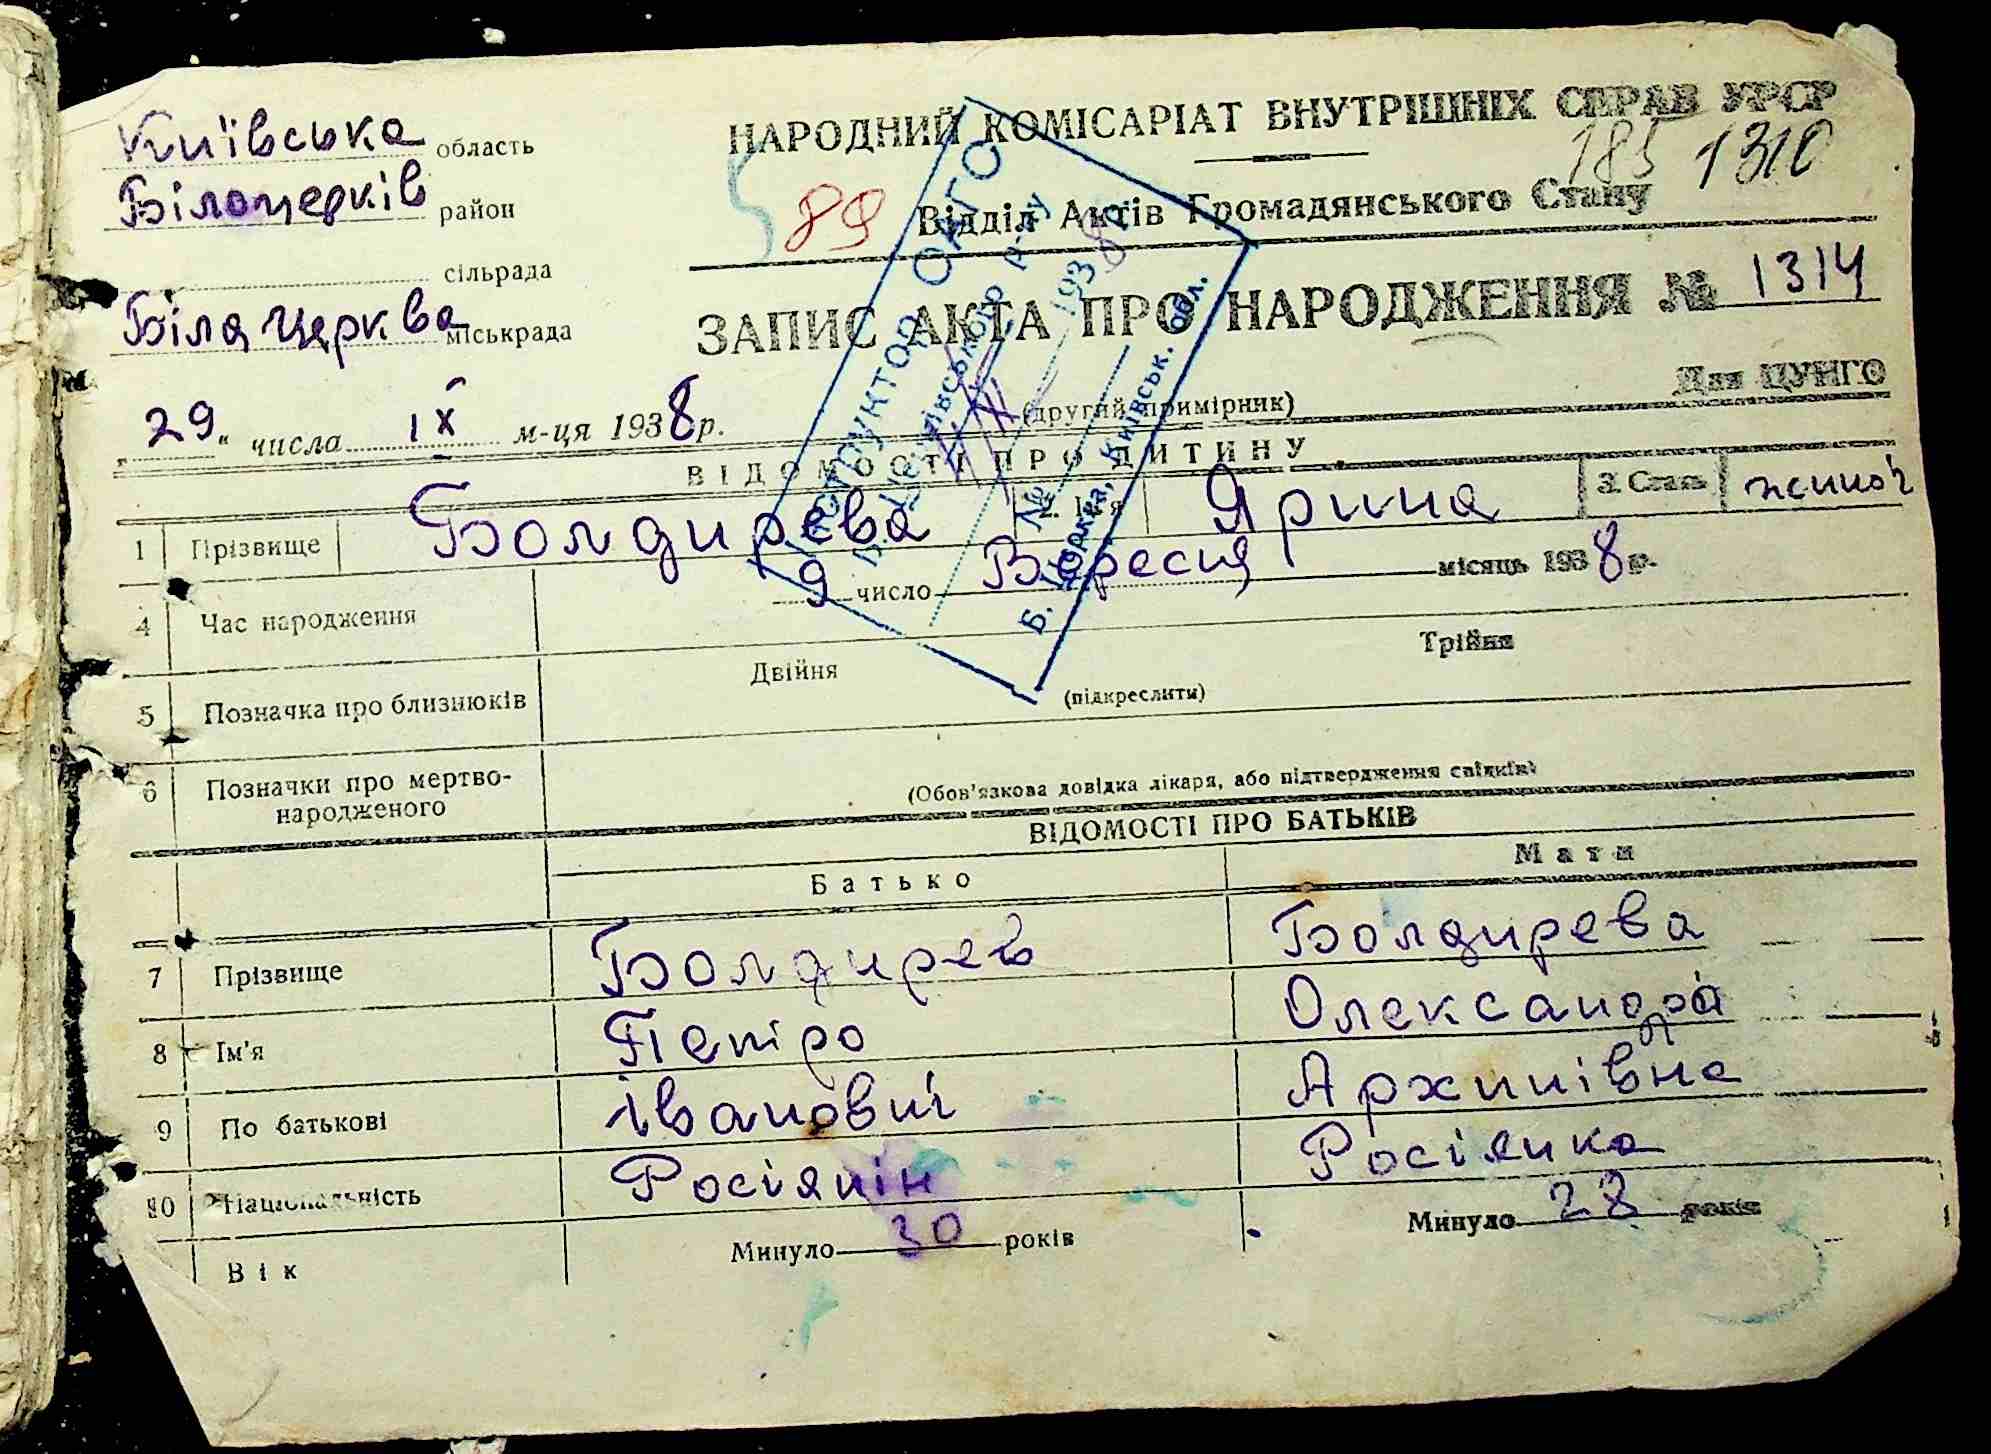 НАРОДНИЙ КОМІСАРІАТ ВНУТРІШНІХ СПРАВ УРСР
Київська область
185 1310
Білоцерків район
89 Відділ Актів Громадянського Стану
сільрада
Біла Церква міськрада
ЗАПИС АКТА ПРО НАРОДЖЕННЯ № 1314
Для ЦУНГО
"29" числа IX м-ця 1938 р.
(другий примірник)
ВІДОМОСТІ ПРО ДИТИНУ
1 Прізвище Болдирева 2. Ім'я Ярина 3. Стать жіноч
4 Час народження 9 число Вересня місяць 1938 р.
5 Позначка про близнюків Двійня Трійня
(підкреслити)
6 Позначки про мертво-
народженого
(Обов'язкова довідка лікаря, або підтвердження свідків)
ВІДОМОСТІ ПРО БАТЬКІВ
Батько Мати
7 Прізвище Болдирев Болдирева
8 Ім'я Петро Олександра
9 По батькові Іванович Архипівна
10 Національність Росіянін Росіянка
Вік Минуло 30 років Минуло 28 років
ІНСТРУКТОР ОАГС
Б. Церківського р-ну
№ 1938
Б. Церква, Київськ. обл.